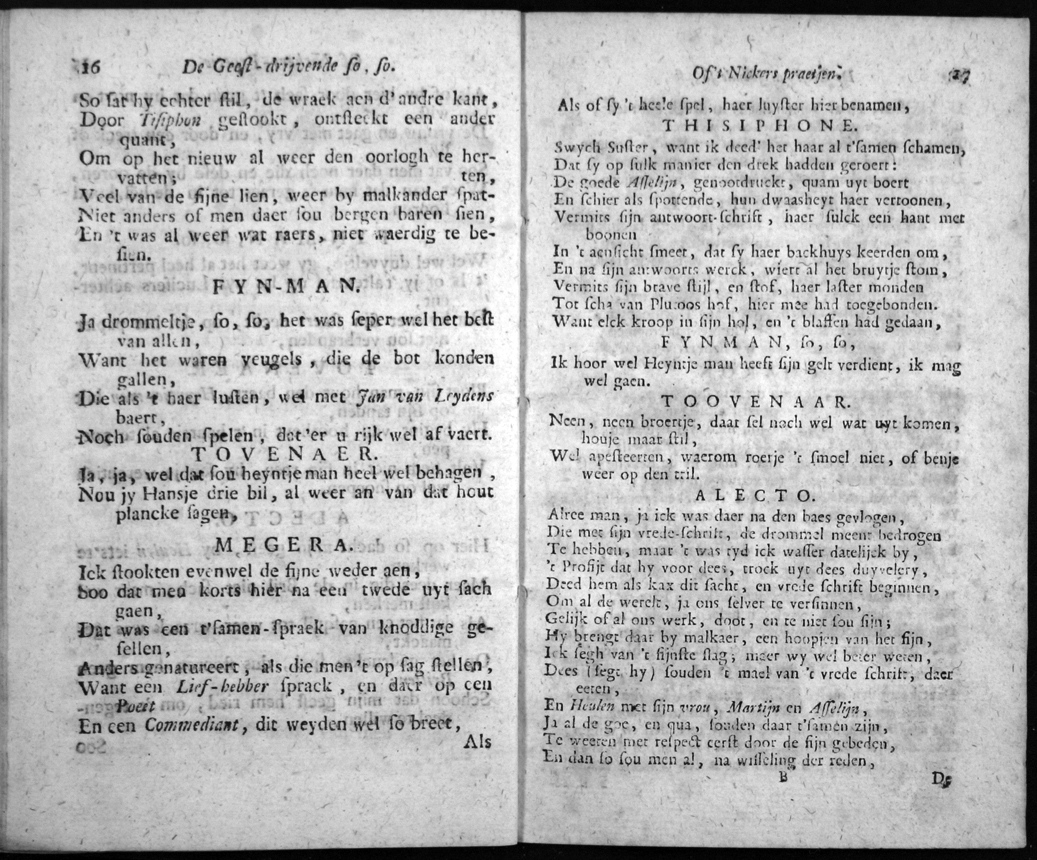 16 De Geest-drijvende so, so.
So sat hy echter stil, de wraek aen d'andre kant,
Door Tisiphon gestookt, ontsteckt een ander
quant,
Om op het nieuw al weer den oorlogh te her-
vatten; ten,
Veel van de fijne lien, weer by malkander spat-
Niet anders of men daer sou bergen baren sien,
En 't was al weer wat raers, niet waerdig te be-
sien.
FYN-MAN.
Ja drommeltje, so, so, het was seper wel het best
van allen,
Want het waren yeugels, die de bot konden
gallen,
Die als 't haer lusten, wel met Jan van Leydens
baert,
Noch souden spelen, dat'er u rijk wel af vaert.
TOVENAER.
Ja, ja, wel dat sou heyntje man heel wel behagen,
Nou jy Hansje drie bil, al weer an van dat hout
plancke sagen,
MEGERA.
Ick stookten evenwel de fijne weder aen,
Soo dat men korts hier na een twede uyt sach
gaen,
Dat was een t'samen-spraek van knoddige ge-
sellen,
Anders genatureert, als die men't op sag stellen,
Want een Lief-hebber sprack, en daer op een
Poëet
En een Commediant, dit weyden wel so breet,
Als
Of't Nickers praetjen. 17
Als of sy 't heele spel, haer luyster hier benamen,
THISIPHONE.
Swych Suster, want ik deed' het haar al t'samen schamen,
Dat sy op sulk manier den drek hadden geroert:
De goede Asselijn, genootdruckt, quam uyt boert
En schier als spottende, hun dwaasheyt haer vertoonen,
Vermits sijn antwoort-schrift, haer sulck een hant met
boonen
In 't aensicht smeet, dat sy haer backhuys keerden om,
En na sijn antwoorts werck, wiert al het bruytje stom,
Vermits sijn brave stijl, en stof, haer laster monden
Tot scha van Plutoos hof, hier mee had toegebonden.
Want elck kroop in sijn hol, en 't blaffen had gedaan,
FYNMAN, so, so,
Ik hoor wel Heyntje man heeft sijn gelt verdient, ik mag
wel gaen.
TOOVENAAR.
Neen, neen broertje, daar sel noch wel wat uyt komen,
houje maar stil,
Wel apesteerten, waerom roerje 't smoel niet, of benje
weer op den tril.
ALECTO.
Alree man, ja ick was daer na den baes gevlogen,
Die met sijn vrede-schrift, de drommel meent bedrogen
Te hebben, maar 't was tyd ick wasser datelijck by,
't Profijt dat hy voor dees, trock uyt dees duyvelery,
Deed hem als kax dit sacht, en vrede schrift beginnen,
Om al de werelt, ja ons selver te versinnen,
Gelijk of al ons werk, doot, en te niet sou sijn;
Hy brengt daar by malkaer, een hoopjen van het fijn,
Ick segh van 't fijnste slag; maer wy wel beter weten,
Dees (segt hy) souden 't mael van 't vrede schrift, daer
eeten,
En Heulen met sijn vrou, Martijn en Asselijn,
Ja al de goe, en qua, souden daar t'samen zijn,
Te weeren met respect eerst door de fijn gebeden,
En dan so sou men al, na wisseling der reden,
B De